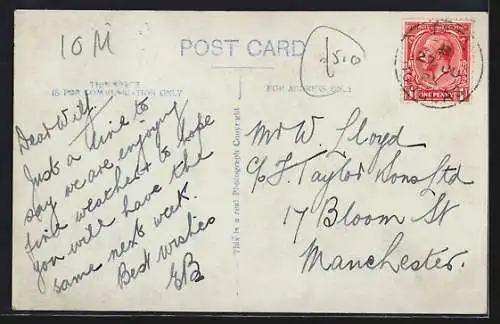 10 M
POST CARD
£5.0
THIS SPACE
IS FOR COMMUNICATION ONLY
FOR ADDRESS ONLY
ONE PENNY
Dear Wilf.
Just a line to
say we are enjoying
fine weather & hope
you will have the
same next week.
Best wishes
EB
This is a real Photograph Copyright
Mr W. Lloyd
c/o F. Taylor & Sons Ltd
17 Bloom St
Manchester.